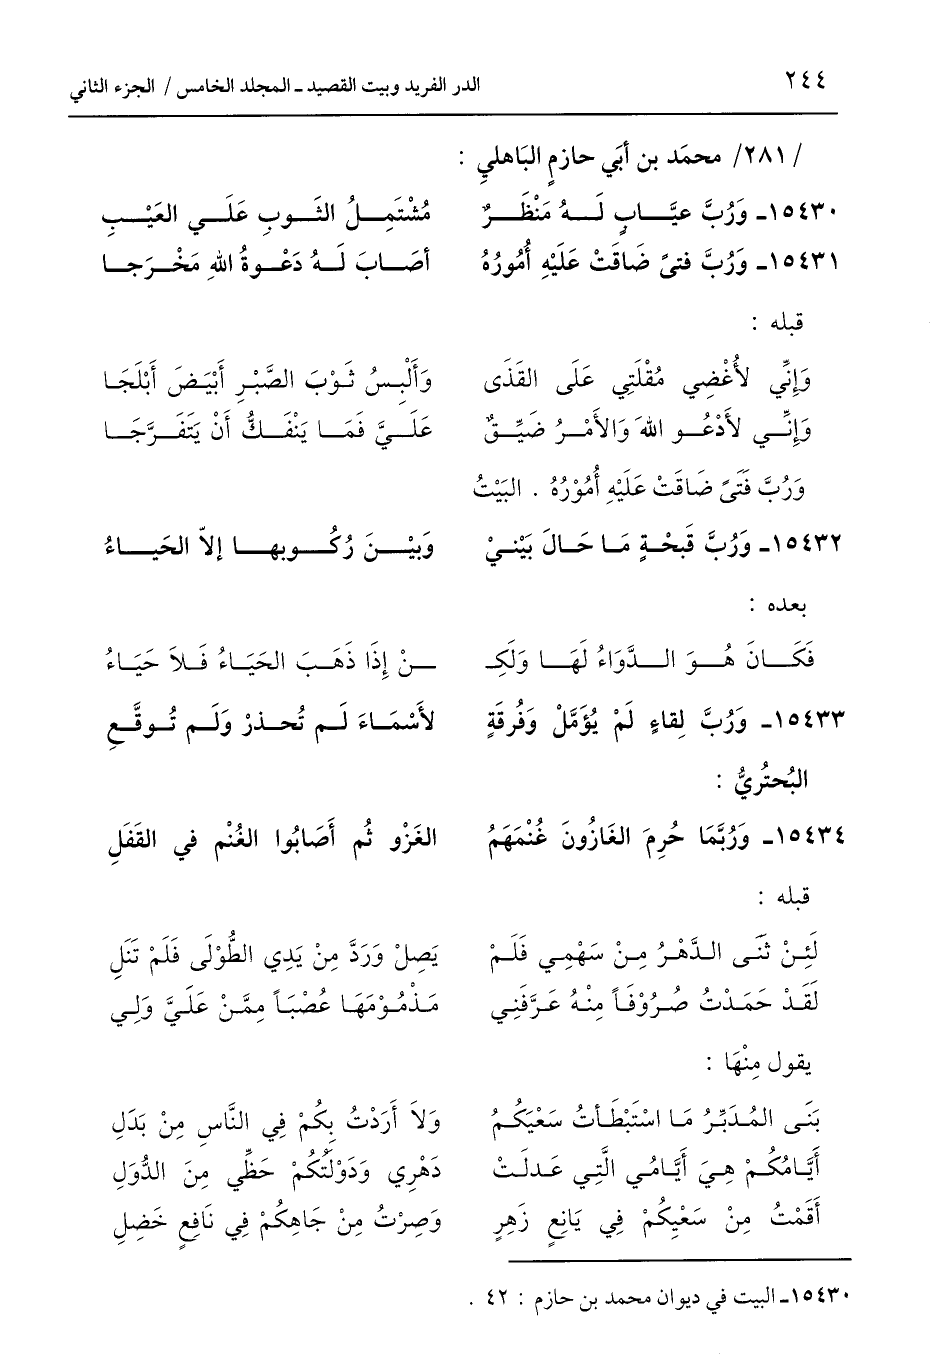 ٢٤٤ الدر الفريد وبيت القصيد ـ المجلد الخامس / الجزء الثاني
/ ٢٨١/ محمَد بن أَبي حازمٍ البَاهلي :
١٥٤٣٠ـ وَرُبَّ عيَّــابٍ لَــهُ مَنْظَــرٌ مُشْتَمِــلُ الثَــوبِ عَلَــي العَيْــبِ
١٥٤٣١ـ وَرُبَّ فتىً ضَاقَتْ عَلَيْهِ أُمُورُهُ أَصَـابَ لَـهُ دَعْـوةُ اللهِ مَخْـرَجـا
قبله :
وَإِنِّي لأُغْضِي مُقْلَتِي عَلَى القَذَى وَأَلْبِسُ ثَـوْبَ الصَّبْـرِ أَبْيَـضَ أَبْلَجَـا
وَإِنِّــي لأَدْعُــو اللهَ وَالأَمْــرُ ضَيِّــقٌ عَلَــيَّ فَمَــا يَنْفَــكُّ أَنْ يَتَفَــرَّجَــا
وَرُبَّ فَتَىً ضَاقَتْ عَلَيْهِ أُمُوْرُهُ . البَيْتُ
١٥٤٣٢ـ وَرُبَّ قَبحْـةٍ مَـا حَـالَ بَيْنـيْ وَبَيْــنَ رُكُــوبهــا إلاّ الحَيــاءُ
بعده :
فَكَــانَ هُــوَ الــدَّوَاءُ لَهَــا وَلَكِـ ـــنْ إِذَا ذَهَــبَ الحَيَــاءُ فَــلاَ حَيَــاءُ
١٥٤٣٣ـ وَرُبَّ لِقاءٍ لَمْ يُؤَمَّلْ وَفُرقَةٍ لأَسْمَـاءَ لَـم تُحـذرْ وَلَـم تُـوقَّـعِ
البُحتُريُّ :
١٥٤٣٤ـ وَرُبَّمَا حُرِمَ الغَازُونَ غُنْمَهَمُ الغَزْو ثُم أَصَابُوا الغُنْم في القَفَلِ
قبله :
لَئِـنْ ثَنَـى الـدَّهْـرُ مِـنْ سَهْمِـي فَلَـمْ يَصِلْ وَرَدَّ مِنْ يَدِي الطُّوْلَى فَلَمْ تَنَلِ
لَقَدْ حَمَـدْتُ صُرُوْفَاً مِنْهُ عَرَّفَنِي مَـذْمُـوْمَهَـا عُصَبَـاً مِمَّـنْ عَلَـيَّ وَلِـي
يقول مِنْهَا :
بَنَـى المُـدَبِّـرُ مَـا اسْتَبْطَـأتُ سَعْيَكُـمُ وَلاَ أَرَدْتُ بِكُمْ فِي النَّاسِ مِنْ بَدَلِ
أَيَّـامُكُـمْ هِـيَ أَيَّامِـي الَّتِـي عَـدلَـتْ دَهْرِي وَدَوْلَتُكُمْ حَظِّي مِنَ الدُّوَلِ
أَقَمْتُ مِنْ سَعْيِكُمْ فِي يَانِعٍ زَهِرٍ وَصِرْتُ مِنْ جَاهِكُمْ فِي نَافِعٍ خَضِلِ
١٥٤٣٠ـ البيت في ديوان محمد بن حازم : ٤٢ .